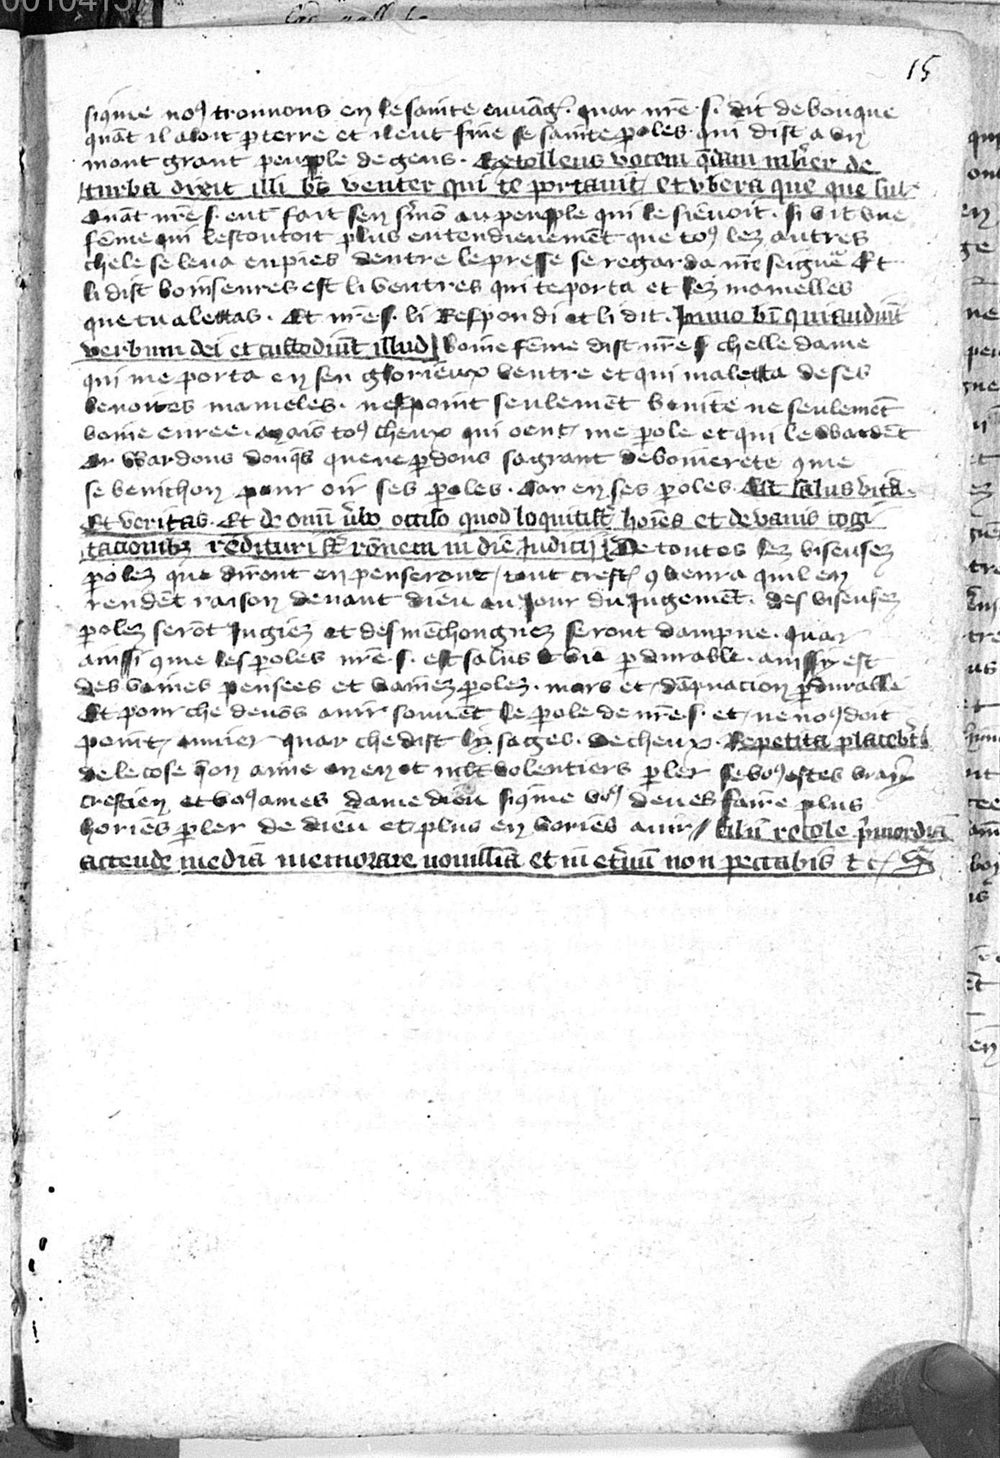 15
siqme noꝯ trouuons en le sainte euuāg̃. quar nr̃e s. dit de bouque
quāt il aloit p terre et il eut fine se sainte p̲oles. qui dist a vn
mont grant peupple de gens. Extollens vocem q̄dam ml̃ier de
turba dixit illi bt̃s venter qui te portauit / et vbera que que sux
Quāt nr̃e s. eut fait sen s̃mō au peupple qui le sieuoit. si vit vne
fēme qui lescoutoit plus entendieuemēt que toꝯ lez autres
chele se leua en pies dentre le presse se regarda nr̃e seigne᷑ Et
li dist boinseures est li ventres qui te porta et lez mamelles
que tu alettas. Et nr̃e s. li Respondi et li dit. Immo bt̃i qui audiūt
verbum dei et custodiūt illud boine fēme dist nr̃e s chelle dame
qui me porta en sen glorieux ventre et qui maletta de ses
benoites mameles. nest point seulemēt bointe ne seulemēt
boine euree. mais toꝯ cheux qui oent me p̲ole et qui le wardēt
Or wardons donq̄s que ne p̲dons sa grant deboinerete qme
se benichon pour oir ses p̲oles. Car en ses p̲oles Est salus vita
Et veritas. Et de omī v̾bo occiso quod loquti fūt hoīes et de vanis cogi
tacionibꝫ reddituri st̄ rōnem in die Judicij De toutes lez viseusez
p̲olez que diront en penseront / tout crest̃ ꝯ venra quil en
rendēt raison deuant dieu au jour du Jugemēt. des viseusez
p̲olez serōt Jugiez et des mēchongnez seront dampne. quar
ainssi qme les p̲oles nr̃e s. est salus et vie p̲durable. ainssy est
des vaines pensees et vainez p̲olez. mors et dāpnacion p̲durable
Et pour che deuōs auir souuēt le p̲ole de nr̃e s. et ne noꝯ doit
point anuier quar che dist ly sages. de cheux. Repetita placebūt
de le cose q̄ on aime on en ot mlt̄ volentiers p̲ler se voꝯ estes vray
crestien et voꝯ ames dame dieu siqme voꝯ deues faire plus
voriēs p̲ler de dieu et plus en voriēs auir / filii recole p̃mordia
attende media memorare nouissīa et in et̃nū non peccabis ⁊ c̃